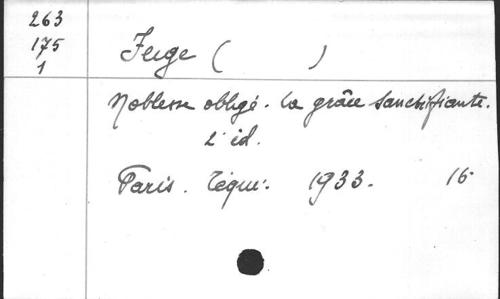 263
175
1
Feige ( )
Noblesse oblige. La grâce sanctifiante.
2 éd.
Paris. Téqui. 1933. 16